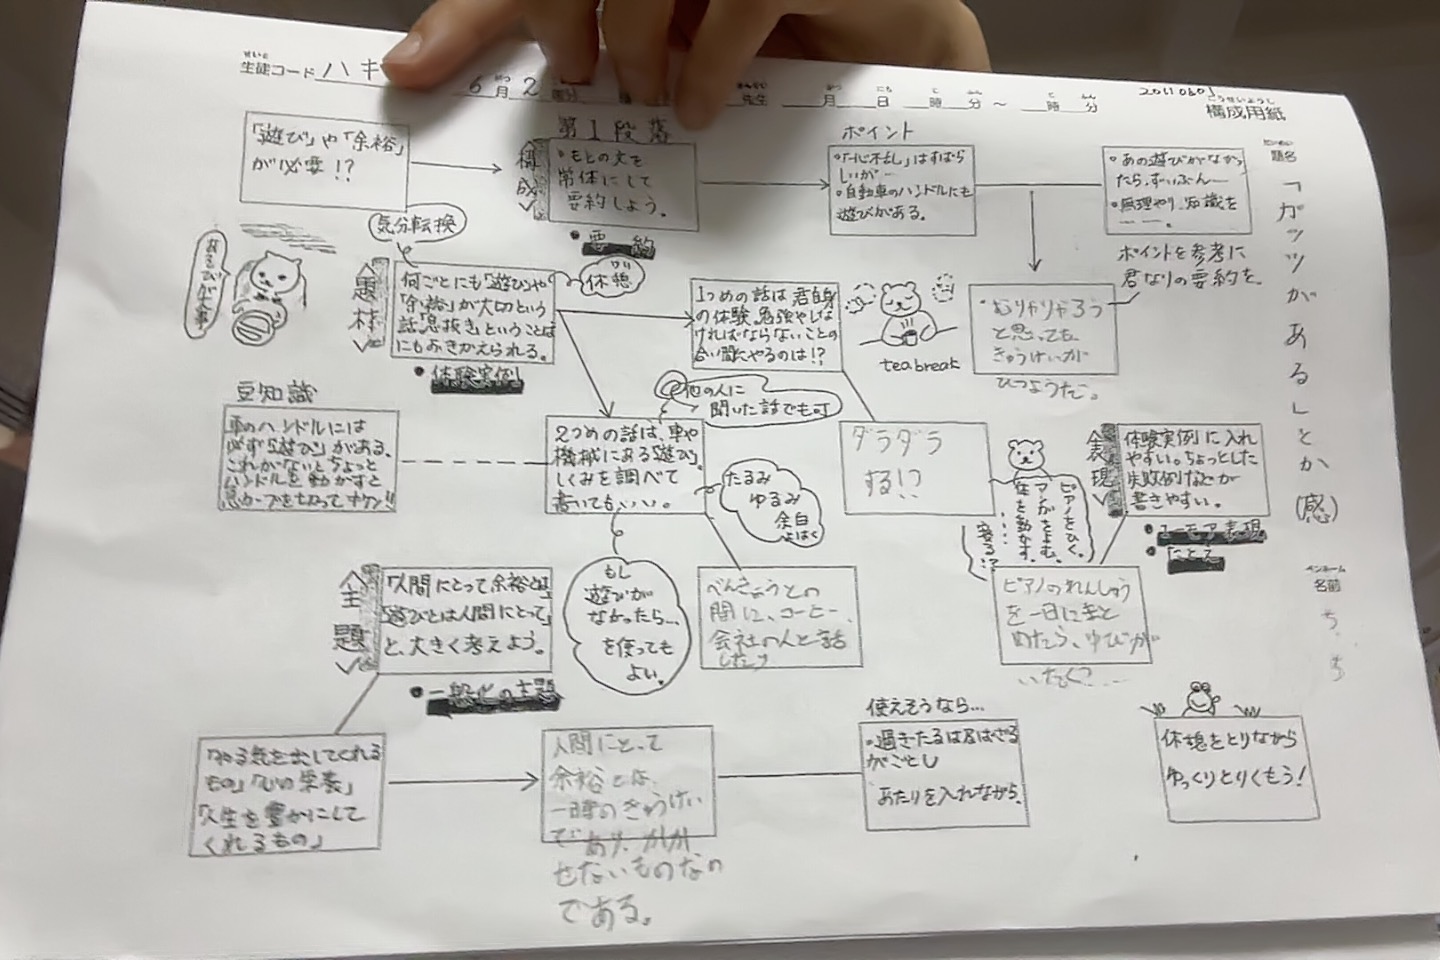 せいと
生徒コード ハキ
6月2
先生
月 日 時 分 ～ 時 分
こうせいようし
構成用紙
「遊び」や「余裕」
が必要!?
構成
第1段落
・もとの文を
常体にして
要約しよう。
・要約
ポイント
はすばら
しいが…
・自動車のハンドルにも
遊びがある。
・あの遊びがなかっ
たら、ずいぶん…
・無理やり、知識を
ポイントを参考に
君なりの要約を。
・むりやりやろう
と思っても
きゅうけいが
ひつようだ。
題名
「ガッツがあるしとか(感)
ペンネーム
名前
ち
気分転換
あそびが大事
題材
何ごとにも「遊び」や
「余裕」が大切という
話「息抜き」ということば
にもおきかえられる。
・体験実例
休憩
1つめの話は君自身
の体験。勉強やしな
ければならないことの
合い間にやるのは!?
tea break
豆知識
車のハンドルには
必ず「遊び」がある。
これがないとちょっと
ハンドルを動かすと
急カーブを切ってキケン!!
他の人に
聞いた話でも可
2つめの話は、車や
機械にある「遊び」。
しくみを調べて
書いてもいい。
たるみ
ゆるみ
余白
よはく
ダラダラ
する!?
ピアノをひく。
マンガをよむ。
体を動かす。
寝る!?
表現
体験実例に入れ
やすい。ちょっとした
失敗例などが
書きやすい。
・ユーモア表現
・たとえ
主題
「人間にとって余裕とは」
「遊びとは人間にとって」
と、大きく考えよう。
・一般化の主題
もし
遊びが
なかったら…
を使っても
よい。
べんきょうとの
間に、コーヒー、
会社の人と話
したり
ピアノのれんしゅう
を一日にまと
めたら、ゆびが
いたく?……
「やる気を出してくれる
もの」「心の栄養」
「人生を豊かにして
くれるもの」
人間にとって
余裕とは、
一時のきゅうけい
であり、かか
せないものなの
である。
使えそうなら…
・過ぎたるは及ばざる
がごとし
あたりを入れながら。
休憩をとりながら
ゆっくりとりくもう!